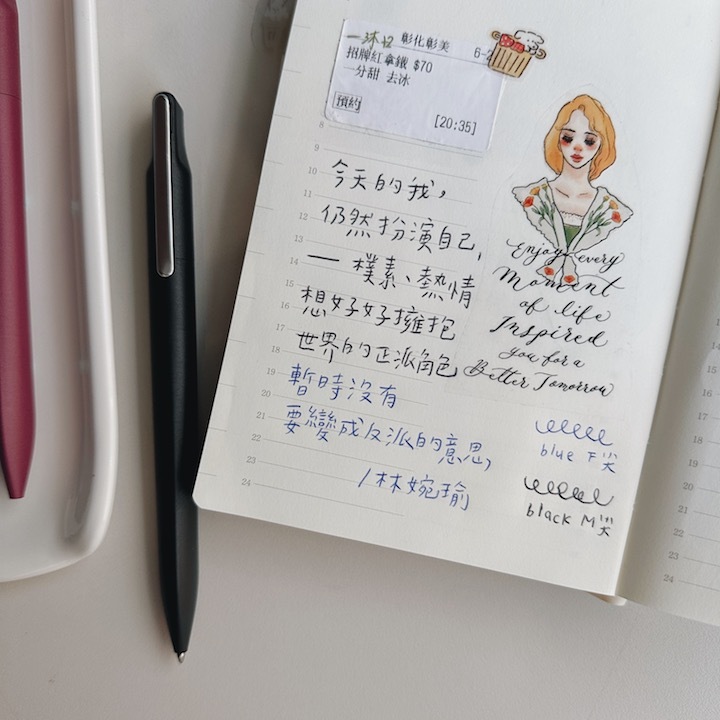 一沐日 彰化彰美 6-2
招牌紅拿鐵 $70
一分甜 去冰
預約
[20:35]
8
9
10
11
12
13
14
15
16
17
18
19
20
21
22
23
24
今天的我，
仍然扮演自己，
一樸素、熱情
想好好擁抱
世界的正派角色
暫時沒有
要變成反派的意思，
/林婉瑜
Enjoy every
Moment
of life
Inspired
you for a
Better Tomorrow
blue F尖
black M尖
14
15
16
17
18
19
20
21
22
23
24